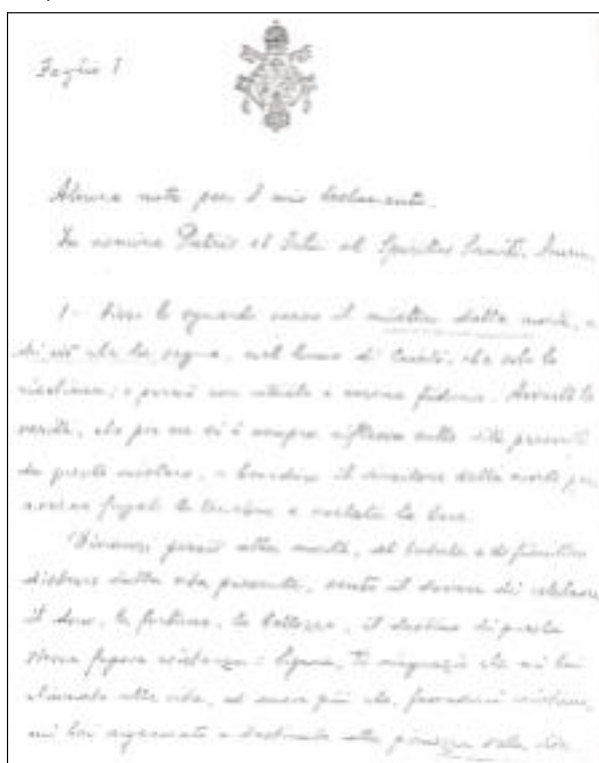 Foglio I
Alcune note per il mio testamento.
In nomine Patris et Filii et Spiritus Sancti. Amen.
1. Fisso lo sguardo verso il mistero della morte, e
di ciò che la segue, nel lume di Cristo, che solo lo
rischiara; e perciò con umile e serena fiducia. Avverto la
verità, che per me si è sempre riflessa sulla vita presente
da questo mistero, e benedico il vincitore della morte per
averne fugate le tenebre e svelata la luce.
Dinanzi perciò alla morte, al totale e definitivo
distacco dalla vita presente, sento il dovere di celebrare
il dono, la fortuna, la bellezza, il destino di questa
stessa fugace esistenza: Signore, Ti ringrazio che mi hai
chiamato alla vita, ed ancor più che, facendomi cristiano,
mi hai rigenerato e destinato alla pienezza della vita.